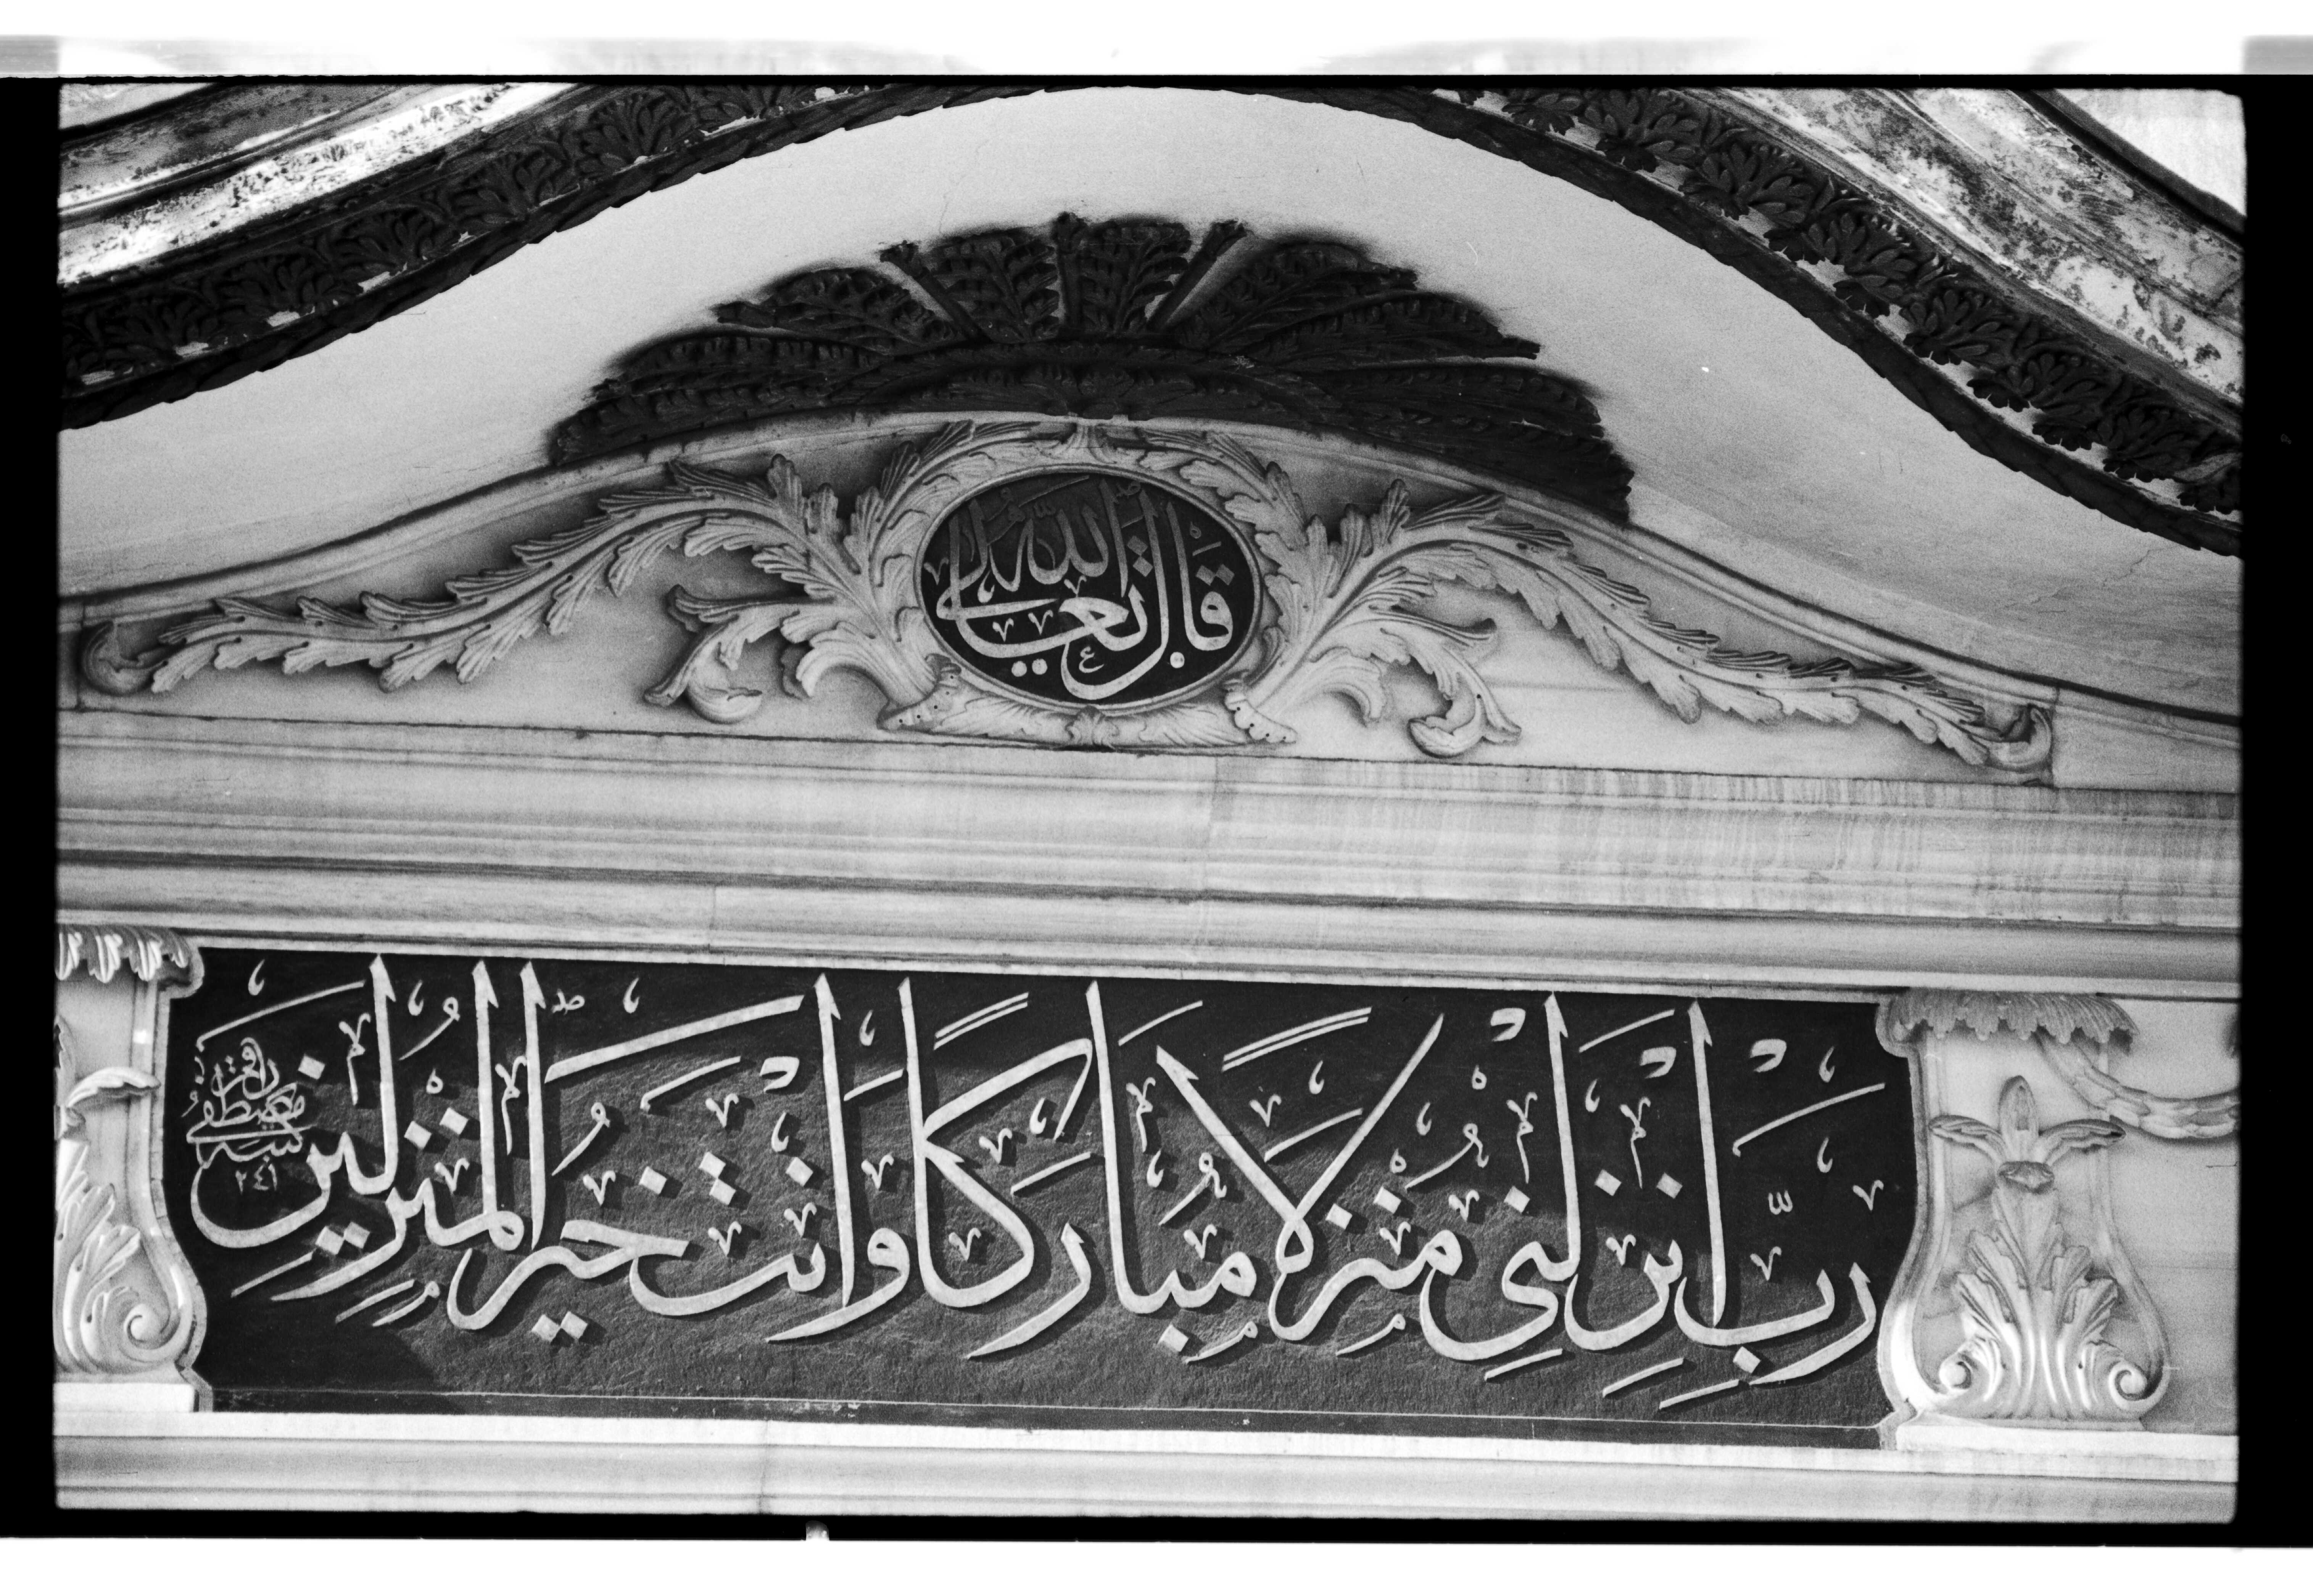 قَالَ اللّٰهُ تَعَالٰى
رَبِّ اَنْزِلْنِى مُنْزَلًا مُبَارَكًا وَاَنْتَ خَيْرُ الْمُنْزِلِينَ
كتبه مصطفى راقم